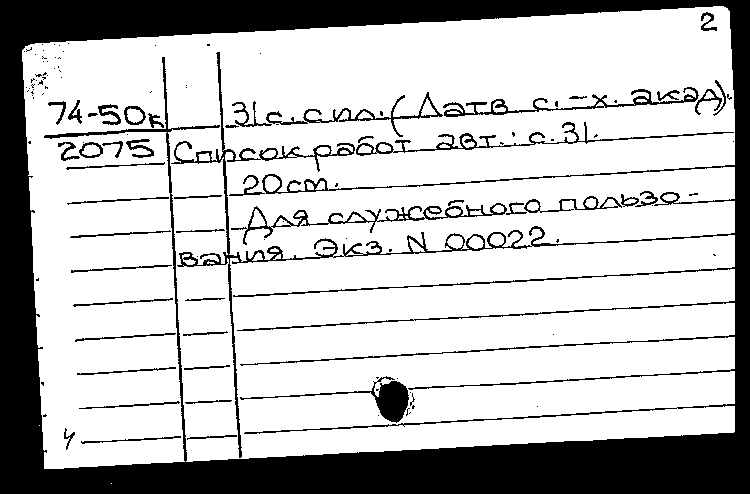 2
74-50к 31с. с ил. (Латв с.-х. акад).
2075 Список работ авт.: с. 31.
20 см.
Для служебного пользо-
вания. Экз. N 00022.